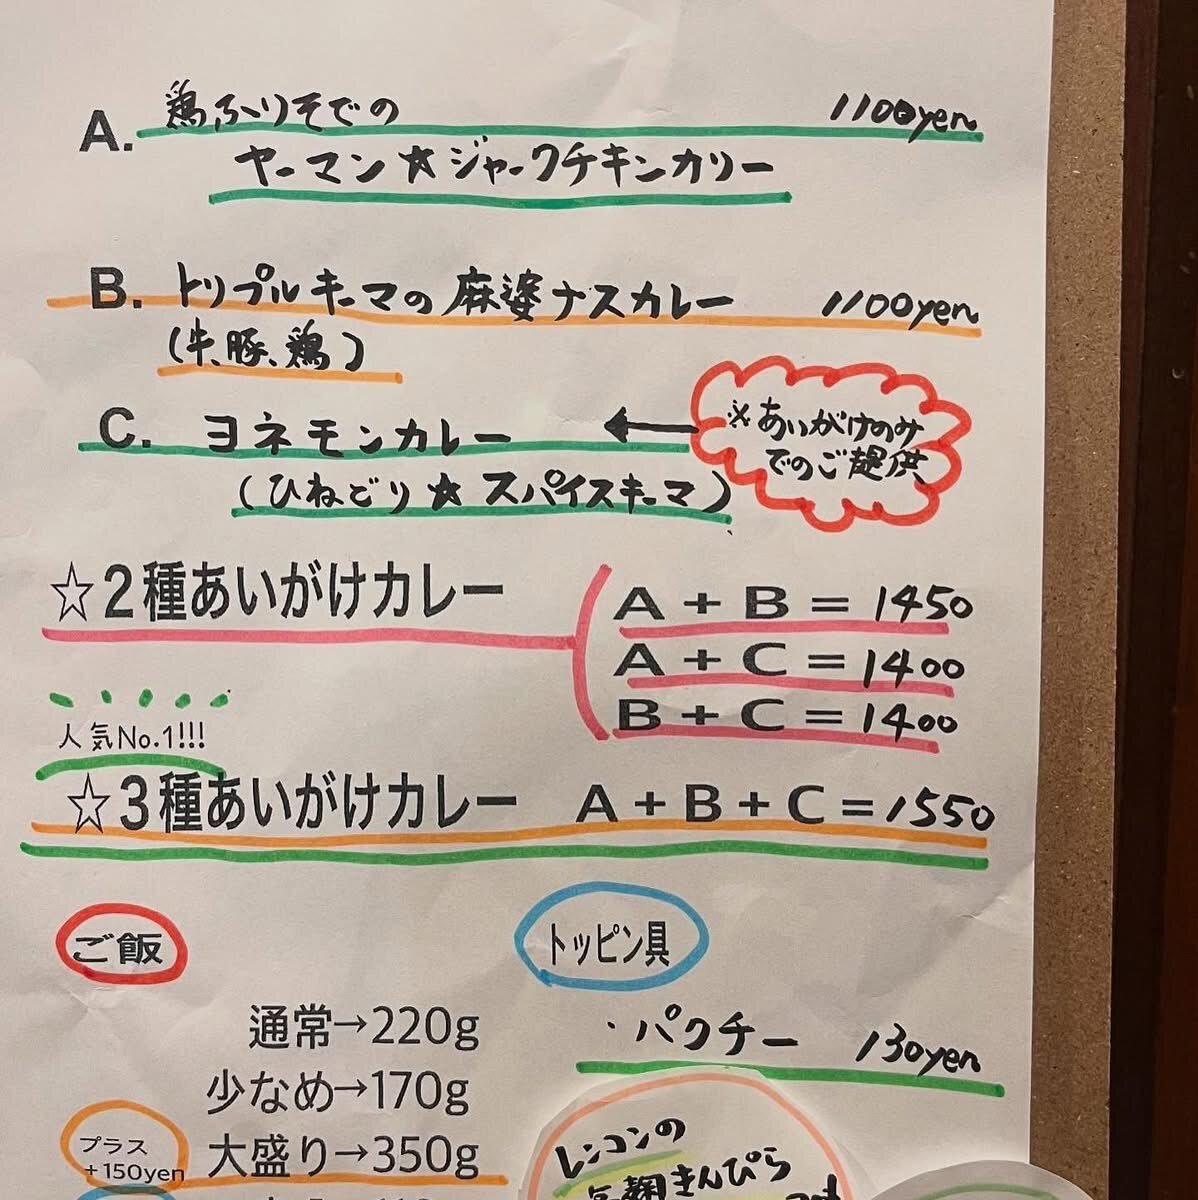 A. 鶏ふりそでの 1100yen
ヤーマン☆ジャークチキンカリー
B. トリプルキーマの麻婆ナスカレー 1100yen
(牛、豚、鶏)
C. ヨネモンカレー ←
※あいがけのみ
でのご提供
(ひねどり☆スパイスキーマ)
☆2種あいがけカレー
A+B=1450
A+C=1400
B+C=1400
人気No.1!!!
☆3種あいがけカレー A+B+C=1550
ご飯
通常→220g
少なめ→170g
プラス
+150yen
大盛り→350g
トッピン具
・パクチー 130yen
レンコンの
麹きんぴら